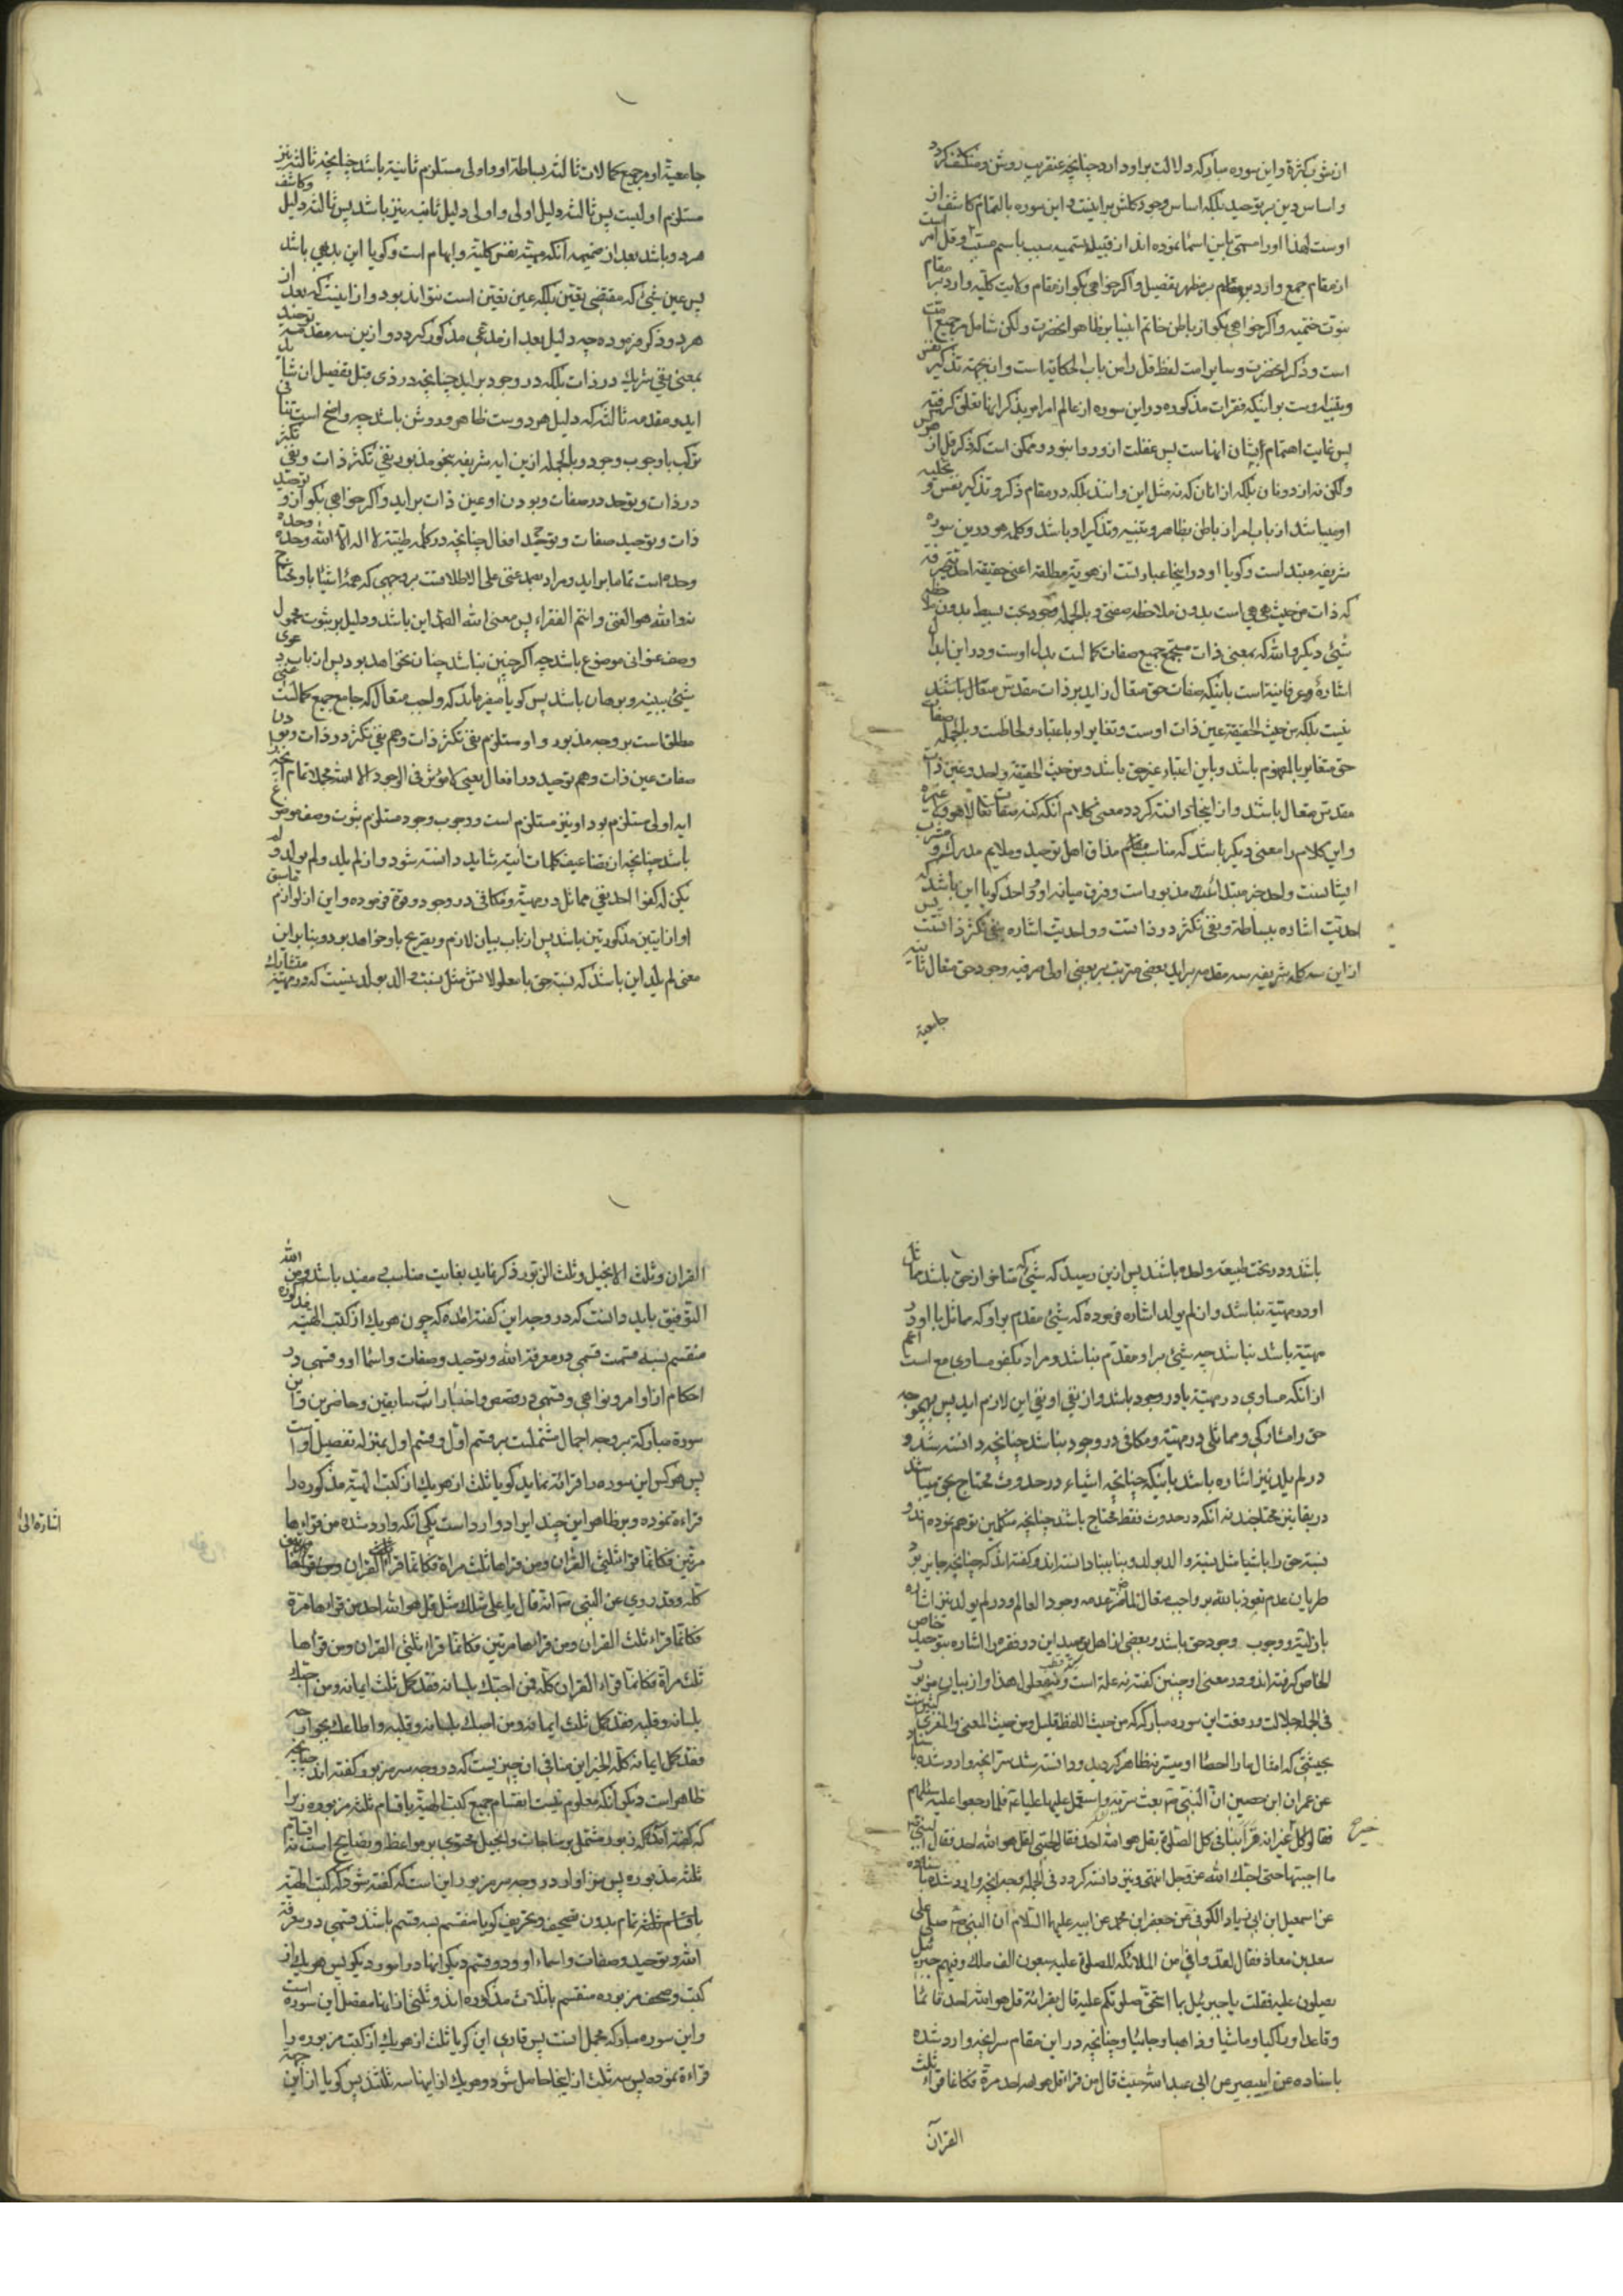 از شوب کثرة و این سوره مبارکه دلالت بر او دارد چنانچه عنقریب روشن و منکشف کردد
و اساس دین بر توحید بلکه اساس وجود کلش بر اینست و این سوره بالتمام کاشف از
اوست لهذا او را مسمی باین اسما نموده اند از قبیل تسمیه سبب باسم مسبب و قل امر است
از مقام جمع وارد بر مظهر تفصیل و اکر خواهی بکو از مقام ولایت کلیه وارد بر مقام
نبوت ختمیه و اکر خواهی بکو از باطن خاتم انبیا بر ظاهر انحضرت و لکن شامل جمیع امت
است و ذکر انحضرت و سایر امت لفظ قل را من باب الحکایة است و از جهة تذکیر نفس
و تنبیه اوست بر اینکه فقرات مذکوره در این سوره از عالم امر امر بذکر انها تعلق کرفته
پس غایت اهتمام در شان انهاست پس غفلت از و روا نبود و ممکن است که ذکر قل از
و لکن نه از دونان بلکه از انان که نه مثل این و انند بلکه در مقام ذکر و تذکیر نفس و
او میباشد از باب امر از باطن بظاهر و تنبیه و تذکیر او باشد و کلمه هو در این سوره
شریفه مبتدا است و کویا او در اینجا عبارتست از هویة مطلقه اعنی حقیقه احدیة صرفه
که ذات من حیث هی هی است بدون ملاحظه صفتی و بالجمله وجود بحت بسیط بدون ملاحظه
شیئی دیکر و الله که بمعنی ذات مستجمع جمیع صفات کمالست بدل اوست و در این ابدال
اشارهٔ و عرفانیة است باینکه صفات حق متعال زاید بر ذات مقدس متعال باشند
نیست بلکه من حیث الحقیقة عین ذات اوست و تغایر او باعتبار و لحاظست و بالجمله صفات
حق متغایر بالمفهوم باشد و باین اعتبار غیر حق باشد و من حیث الحقیقة واحد و عین ذات
مقدس متعال باشند و از اینجا دانسته کردد معنی کلام انکه کفته صفاته تعالی لا هو و لا غیره
و این کلام را معنی دیکر باشد که مناسب مقام مذاق اهل توحید و ملایم مدرک و مشرب
ایشانست و احد خبر مبتدای مذبور است و فرق میانه او و واحد کویا این باشد که
احدیت اشاره ببساطة و نفی تکثر در ذاتست و واحدیت اشاره بنفی تکثر ذاتست پس
از این سه کلمه شریفه سه مقدمه براید بعضی مترتب بر بعضی اولی صرفیه وجود حق متعال ثانیه
جامعیة
جامعیة او مر جمیع کمالات ثالثه بساطة او و اولی مستلزم ثانیة باشد چنانچه ثالثه نیز
مستلزم اولیست پس ثالثه دلیل اولی و اولی دلیل ثانیه نیز باشد پس ثالثه دلیل و کاشف
هر دو باشد بعد از ضمیمه انکه مهیة نفس کلیة و ابهام است و کویا این بدیهی باشد
پس عین شیئی که مقتضی تعین بلکه عین تعین است نتواند بود و از اینست که بعد از
هر دو ذکر فرموده چه دلیل بعد از مدعی مذکور کردد و از این سه مقدمه توحید
بمعنی نفی شریک در ذات بلکه در وجود براید چنانچه در ذی قبل تفصیل ان بیاید شا
اید و مقدمه ثالثه که دلیل هر دوست ظاهر و روشن باشد چه واضح است تنافی
ترکب با وجوب وجود و بالجمله از این ایه شریفه بنحو مذبور نفی تکثر ذات و نفی تکثر
در ذات و توحد در صفات و بودن او عین ذات براید و اکر خواهی بکو از او توحید
ذات و توحید صفات و توحید افعال چنانچه در کلمه طیبه لا اله الا الله وحده وحده
وحده است تماما براید و مراد بصمد غنی علی الاطلاقست بر وجهی که همهٔ اشیا باو محتاج
ند و الله هو الغنی و انتم الفقراء پس معنی الله الصمد این باشد و دلیل بر ثبوت محمول
وصف عنوانی موضوع باشد چه اکر چنین نباشد چنان نخواهد بود پس از باب دعوی
شیئی ببینه و برهان باشد پس کویا میفرماید که واجب متعال که جامع جمیع کمالست
مطلقاست بر وجه مذبور و او مستلزم نفی تکثر ذات و هم نفی تکثر در ذات و بودن
صفات عین ذات و هم توحید در افعال یعنی لا مؤثر فی الوجود الا الله مجملا تمام انچه
ایه اولی مستلزم بود او نیز مستلزم است و وجوب وجود مستلزم ثبوت وصف موضوع
باشد چنانچه از تضاعیف کلمات اتیة شاید دانسته شود و از لم یلد و لم یولد و لم
یکن له کفوا احد نفی مماثل در مهیة و مکافی در وجود و قوة فرموده و این از لوازم
او از ایتین مذکورتین باشد پس از باب بیان لازم و تصریح باو خواهد بود و بنابراین
معنی لم یلد این باشد که نسبت حق با معلولاتش مثل نسبت والد بولد نیست که در مهیة متشارک
باشد و در تحت طبیعة واحده باشند پس از این رسید که شیئی که متاخر از حق باشد مماثل
او در مهیة نباشد و از لم یولد اشاره فرموده که شیئی مقدم بر او که مماثل با او در
مهیة باشد نباشد چه شیئی بر او مقدم نباشد و مراد بکفو مساوی مع است اعم
از انکه مساوی در مهیة یا در وجود باشد و از نفی او نفی این لازم اید پس بهیچ وجه
حق را مشارکی و مماثلی در مهیة و مکافی در وجود نباشد چنانچه دانسته شد و
در لم یلد نیز اشاره باشد باینکه چنانچه اشیاء در حدوث محتاج بحق میباشند
در بقا نیز محتاجند نه انکه در حدوث فقط محتاج باشد چنانچه متکلمین توهم نموده اند و
نسبة حق را باشیا مثل نسبة والد بولد و بنا ببنا دانسته اند و کفته اند که چنانچه جایز بود
طریان عدم نعوذ بالله بر واجب متعال لما ضر عدمه وجود العالم و در لم یولد نیز اشاره
بازلیة و وجوب وجود حق باشد و بعضی از اهل توحید این دو فقره را اشاره بتوحید خاص
الخاص کرفته اند و در معنی او چنین کفته نه علة است و نه معلول لهذا و از بیان مزبور
فی الجمله جلالت و رفعت این سوره مبارکه که من حیث اللفظ قلیل و من حیث المعنی و المغزی کثیرست
بحیثی که امثال ما را احصا او میسر نه ظاهر کردید و دانسته شد سر انچه وارد شده باسناد
عن عمران ابن حصین ان النبی ص بعث سریة و استعمل علیها علیا ع فلما رجعوا سئلهم
فقالوا کل خیر غیر انه قرا بنا فی کل الصلوة بقل هو الله احد فقال لحبی لقل هو الله احد فقال النبی ص
خیر
ما احببتها حتی احبک الله عز و جل انتهی و نیز دانسته کردد فی الجمله وجه انچه وارد شده باسناده
عن اسمعیل ابن ابی زیاد الکوفی عن جعفر ابن محمد عن ابیه علیهما السلام ان النبی ص صلی علی
سعد بن معاذ فقال لقد وافی من الملائکه للصلوة علیه سبعون الف ملک و فیهم جبرئیل
یصلون علیه فقلت یا جبرئیل بما استحق صلوتکم علیه قال بقرائة قل هو الله احد قائما
و قاعدا و راکبا و ماشیا و ذاهبا و جائیا و چنانچه در این مقام سر انچه وارد شده
باسناده عن ابی بصیر عن ابی عبد الله حیث قال من قراء قل هو الله احد مرة فکانما قراء ثلث
القرآن
القران و ثلث الانجیل و ثلث الزبور ذکر نماید بغایت مناسب و مفید باشد و من الله
التوفیق باید دانست که در وجه این کفته امده که چون هر یک از کتب الهیة مذکوره
منقسم بسه قسمت قسمی در معرفة الله و توحید و صفات و اسما او و قسمی در
احکام از اوامر و نواهی و قسمی در قصص و اخبارات سابقین و حاضرین و این
سورة مبارکه بر وجه اجمال مشتملست بر قسم اول و قسم اول بمنزله تفصیل اوست
پس هر کس این سوره را قرائة نماید کویا ثلث از هر یک از کتب الهیة مذکوره را
قراءة نموده و بر ظاهر این چند ایراد وارد است یکی انکه وارد شده من قراءها
مرتین فکانما قرا ثلثی القران و من قراها ثلث مراة فکانما قراء القران
کله و قد روی عن النبی ص انه قال یا علی مثلک مثل قل هو الله احد من قراءها مرة
فکانما قراء ثلث القران و من قراءها مرتین فکانما قراء ثلثی القران و من قراها
ثلث مراة فکانما قراء القران کله فمن احبک بلسانه فقد کمل ثلث ایمانه و من احبک
بلسانه و قلبه فقد کمل ثلثا ایمانه و من احبک بلسانه و قلبه و اطاعک بجوارحه
فقد کمل ایمانه کله الخبر این منافی از چیزیست که در وجه سر مزبور کفته اند چنانچه
ظاهر است دیکر انکه معلوم نیست انقسام جمیع کتب الهیة باقسام ثلثه مزبوره زیرا
که کفته اند که زبور مشتمل بر مناجات و انجیل محتوی بر مواعظ و نصایح است نه اقسام
ثلثه مذبوره پس سزاوار در وجه سر مزبور این است که کفته شود که کتب الهیة
باقسام ثلثه تمام بدون تصحیف و تحریف کویا منقسم بسه قسم باشد قسمی در معرفة
الله و توحید و صفات و اسماء او و دو قسم دیکر اینها در امور دیکر پس هر یک از
کتب و صحف مزبوره منقسم باثلاث مذکوره اند و ثلثی از انها مفصل این سوره است
و این سوره مبارکه مجمل انست پس قاری این کویا ثلث از هر یک از کتب مزبوره را
قراءة نموده پس سه ثلث از اینجا حاصل شود و هر یک از اینها سه ثلثند پس کویا از این جهة
اشارة الی